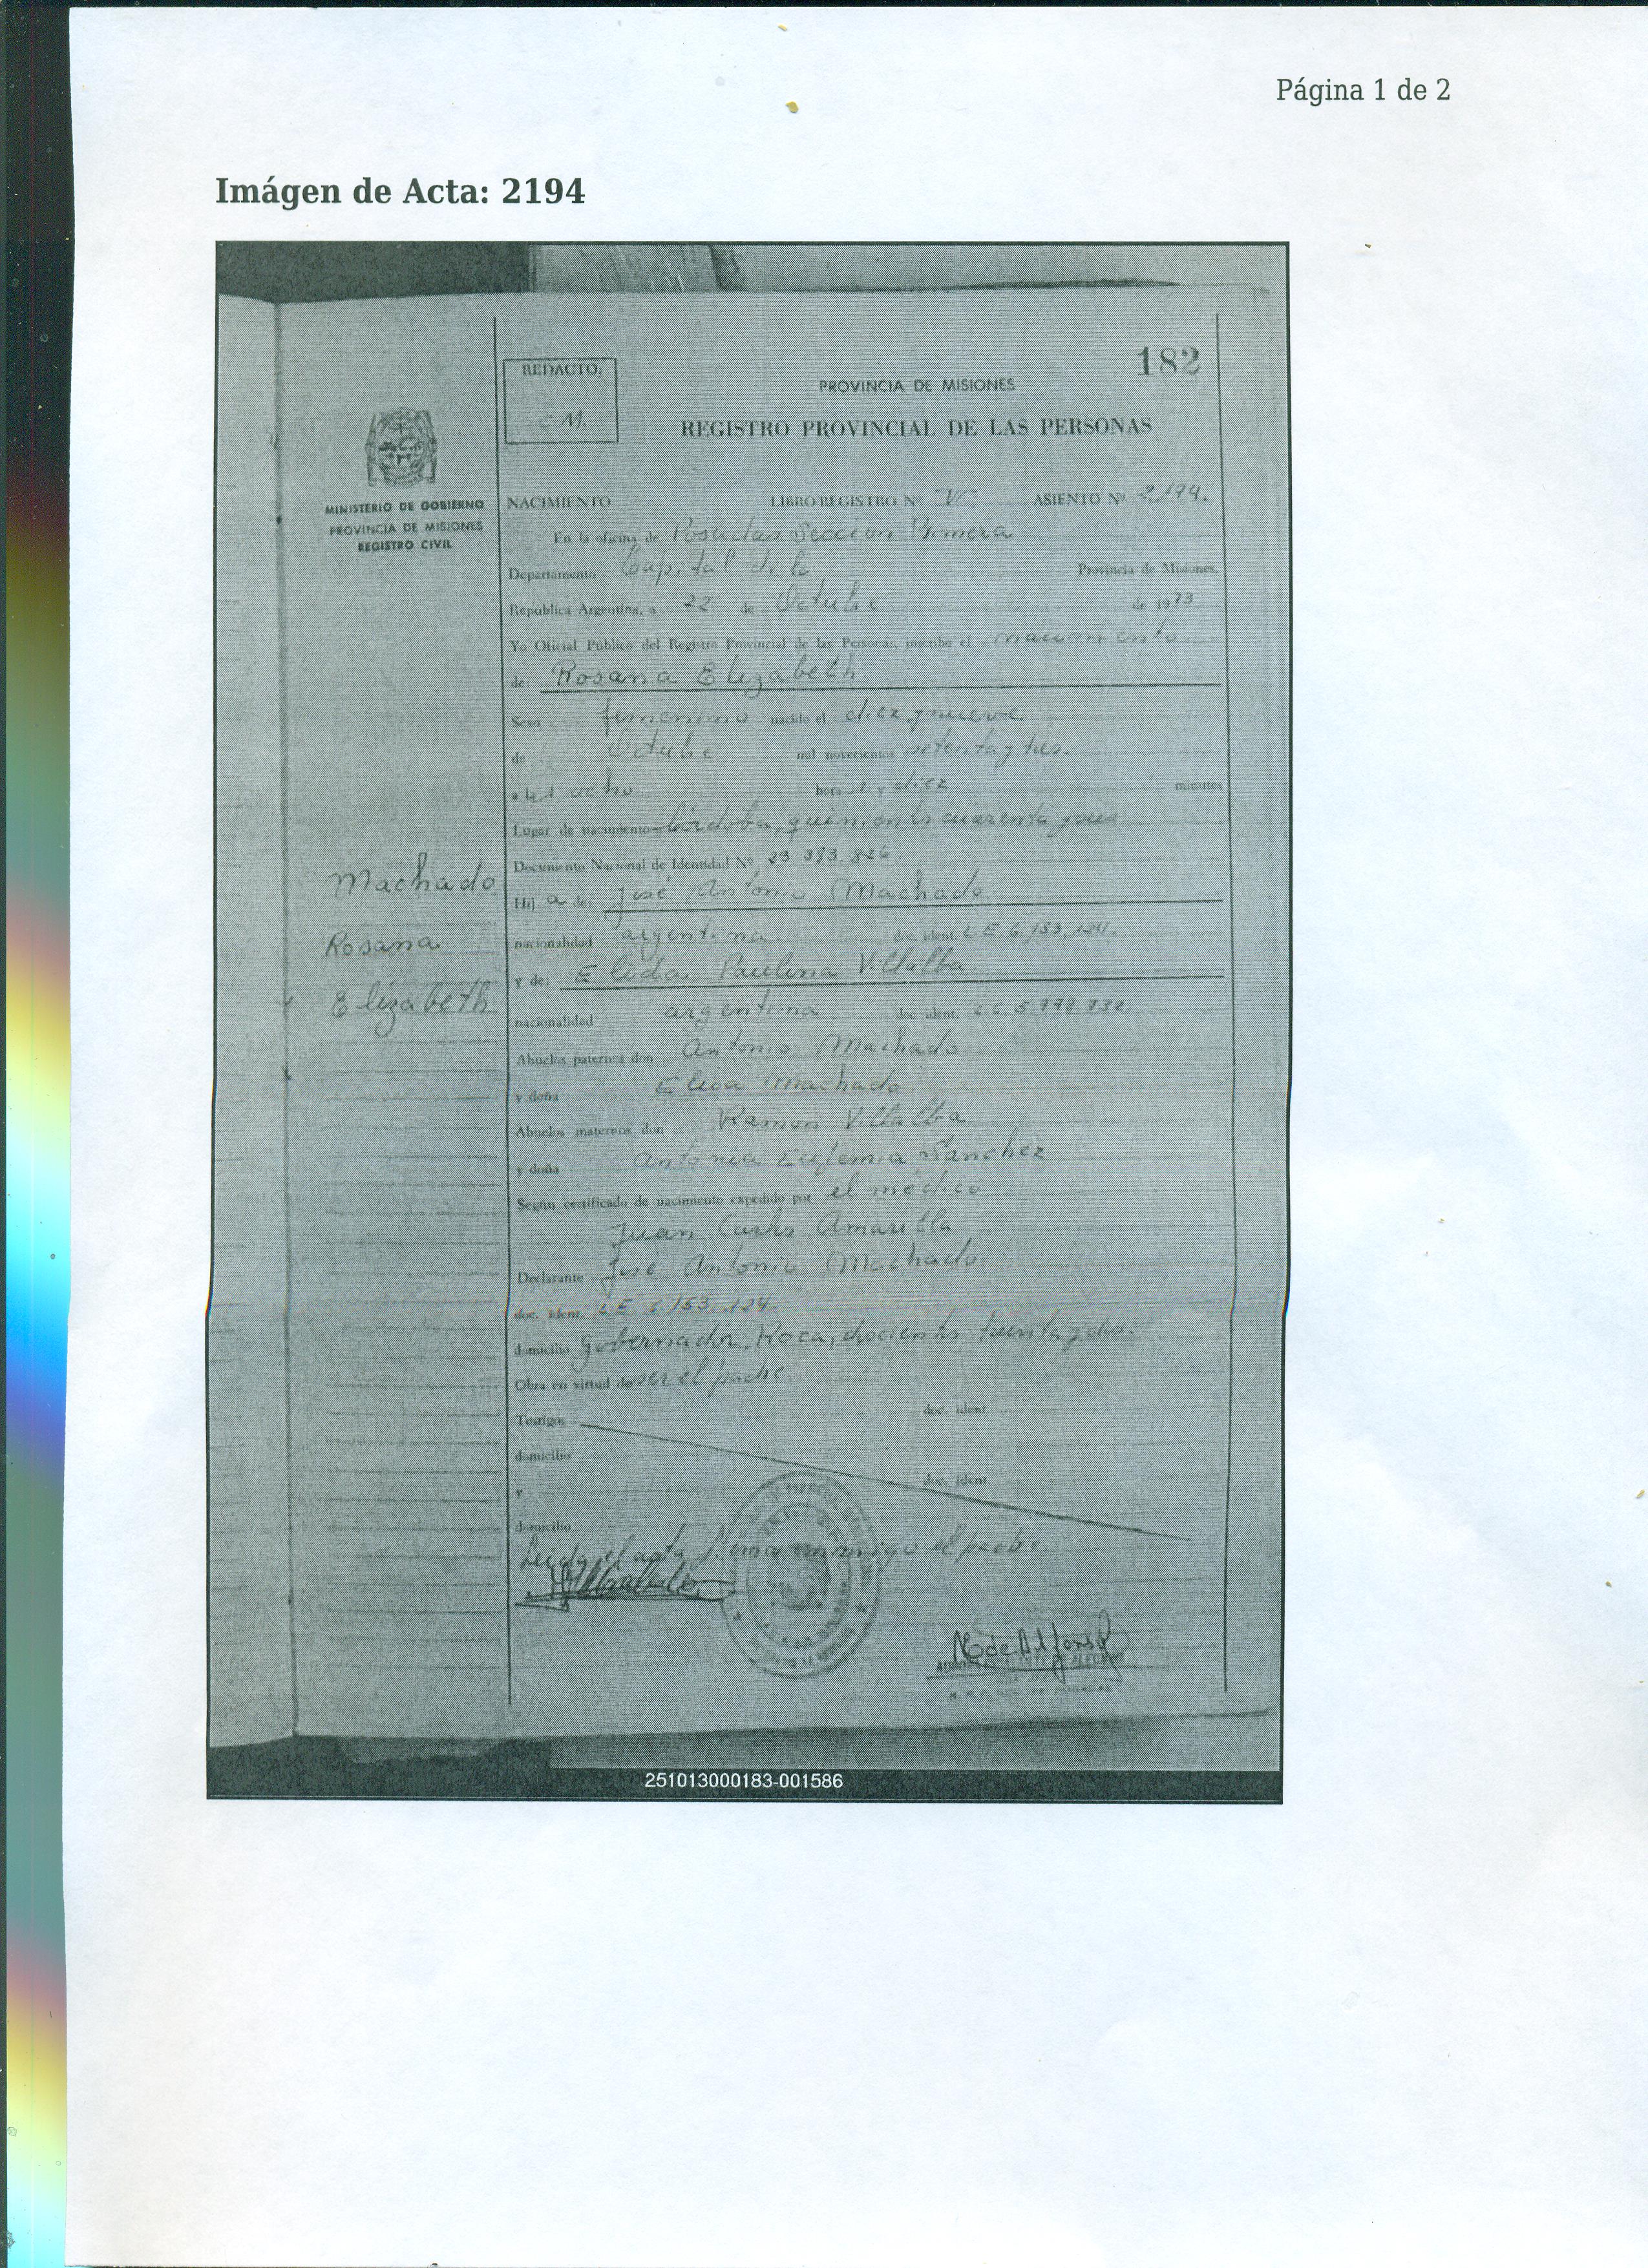 Página 1 de 2
Imágen de Acta: 2194
182
REDACTO:
M.
PROVINCIA DE MISIONES
REGISTRO PROVINCIAL DE LAS PERSONAS
MINISTERIO DE GOBIERNO
PROVINCIA DE MISIONES
REGISTRO CIVIL
NACIMIENTO LIBRO REGISTRO Nº ASIENTO Nº 2194.
En la oficina de Posadas Sección Primera
Departamento Capital de la Provincia de Misiones,
República Argentina, a 22 de Octubre de 1973
Yo Oficial Público del Registro Provincial de las Personas, inscribo el nacimiento
de: Rosana Elizabeth
Sexo femenino nacido el diez y nueve
de Octubre mil novecientos setenta y tres.
a las ocho horas y diez minutos
Lugar de nacimiento Córdoba, quinientos cuarenta y
Documento Nacional de Identidad Nº 23 383 826
Hija de: José Antonio Machado
nacionalidad argentina. doc. ident. L E 6 153.
y de: Elida Paulina Villalba
nacionalidad argentina doc. ident. 5
Abuelos paternos don Antonio Machado
y doña Machado
Abuelos maternos don Ramon Villalba
y doña Antonia Eufemia Sanchez
Según certificado de nacimiento expedido por el médico
Juan Carlos Amarilla
Declarante José Antonio Machado
doc. ident. L E 6 153. 124.
domicilio Gobernador Roca, doscientos treinta y dos.
Obra en virtud de ser el padre
Testigos doc. ident.
domicilio
y doc. ident.
domicilio
Leída el acta firma conmigo el padre
Machado
Rosana
Elizabeth
de Alfonso
251013000183-001586